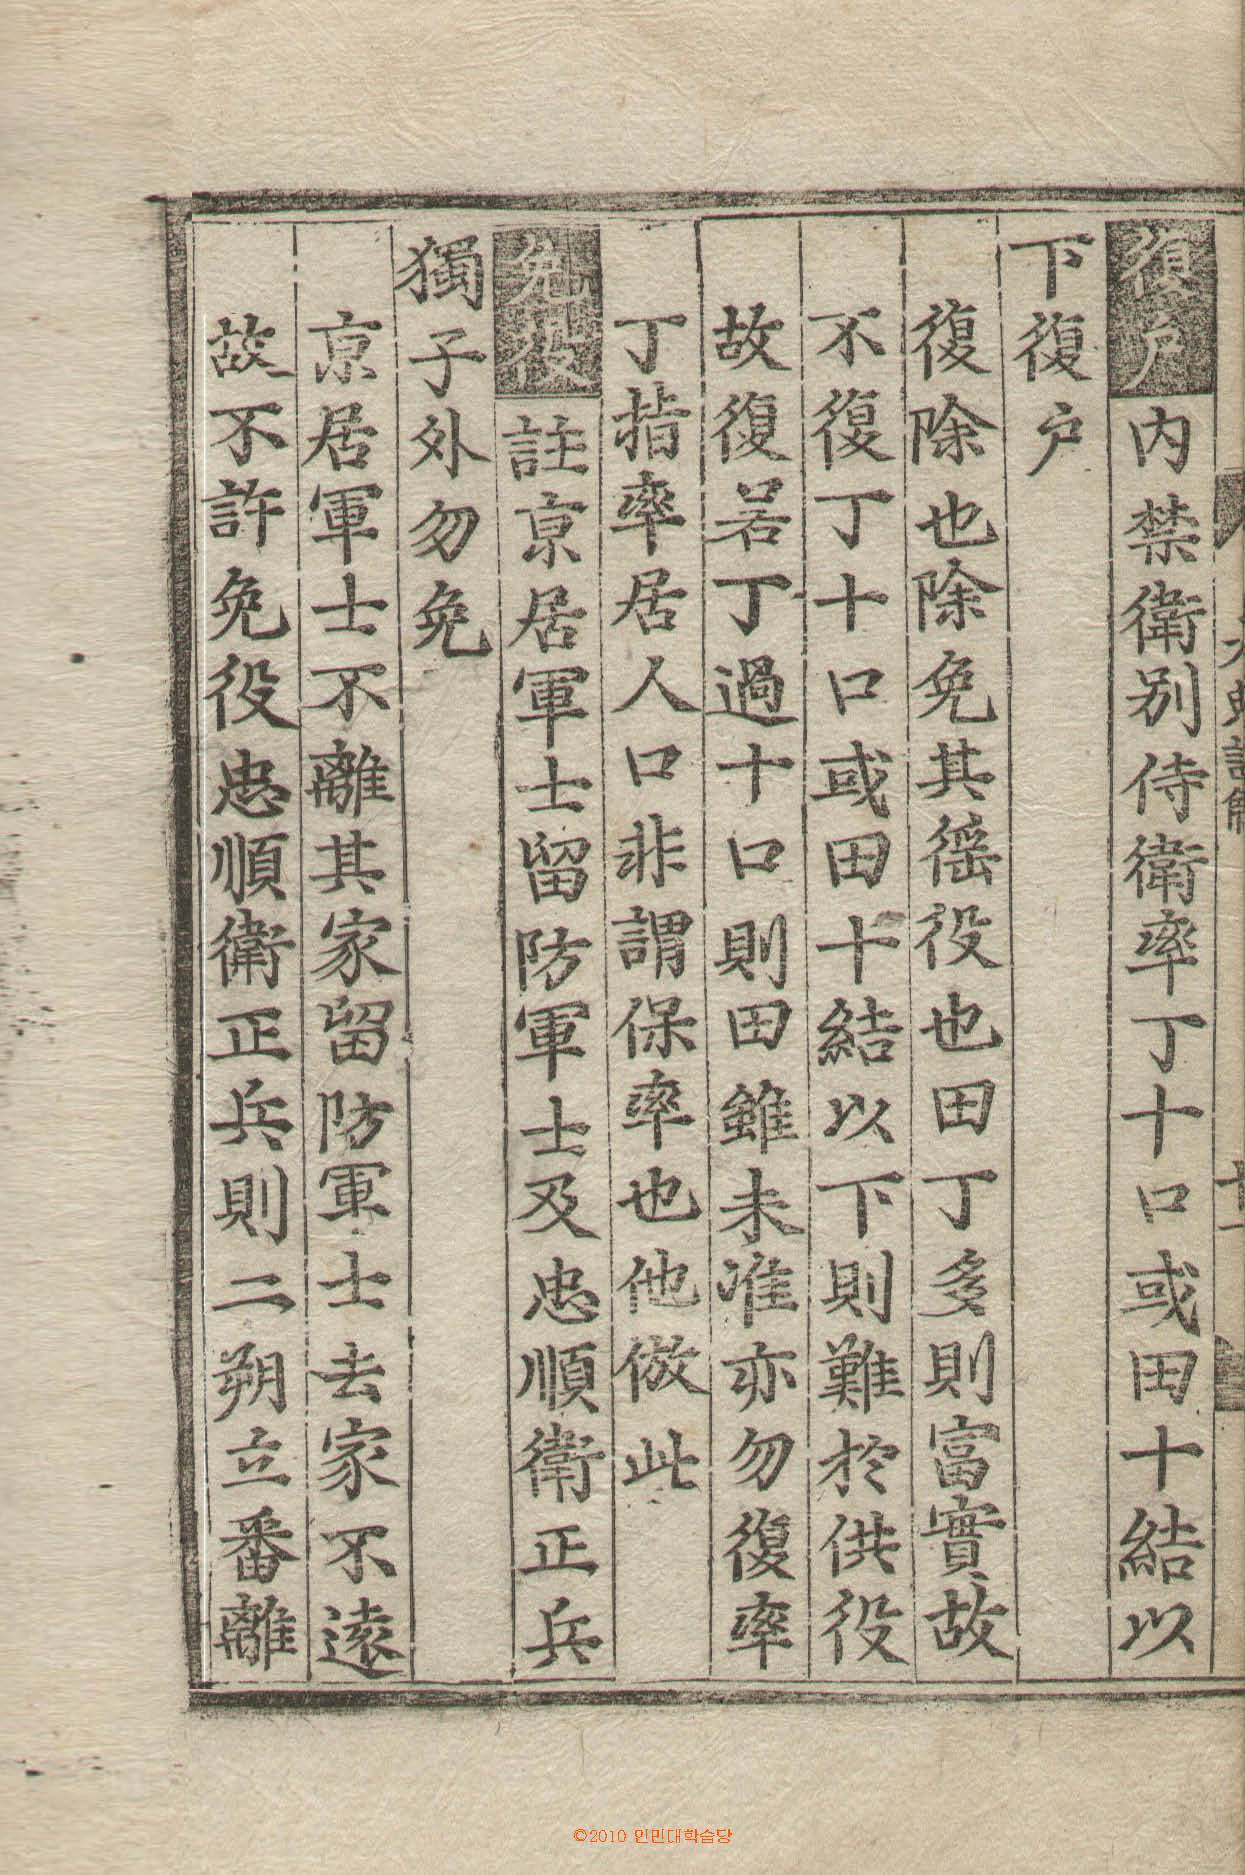 復戶內禁衛別侍衛率丁十口或田十結以
下復戶
復除也除免其徭役也田丁多則富實故
不復丁十口或田十結以下則難於供役
故復若丁過十口則田雖未准亦勿復率
丁指率居人口非謂保率也他倣此
免役註京居軍士留防軍士及忠順衛正兵
獨子外勿免
京居軍士不離其家留防軍士去家不遠
故不許免役忠順衛正兵則二朔立番離
©2010 인민대학습당